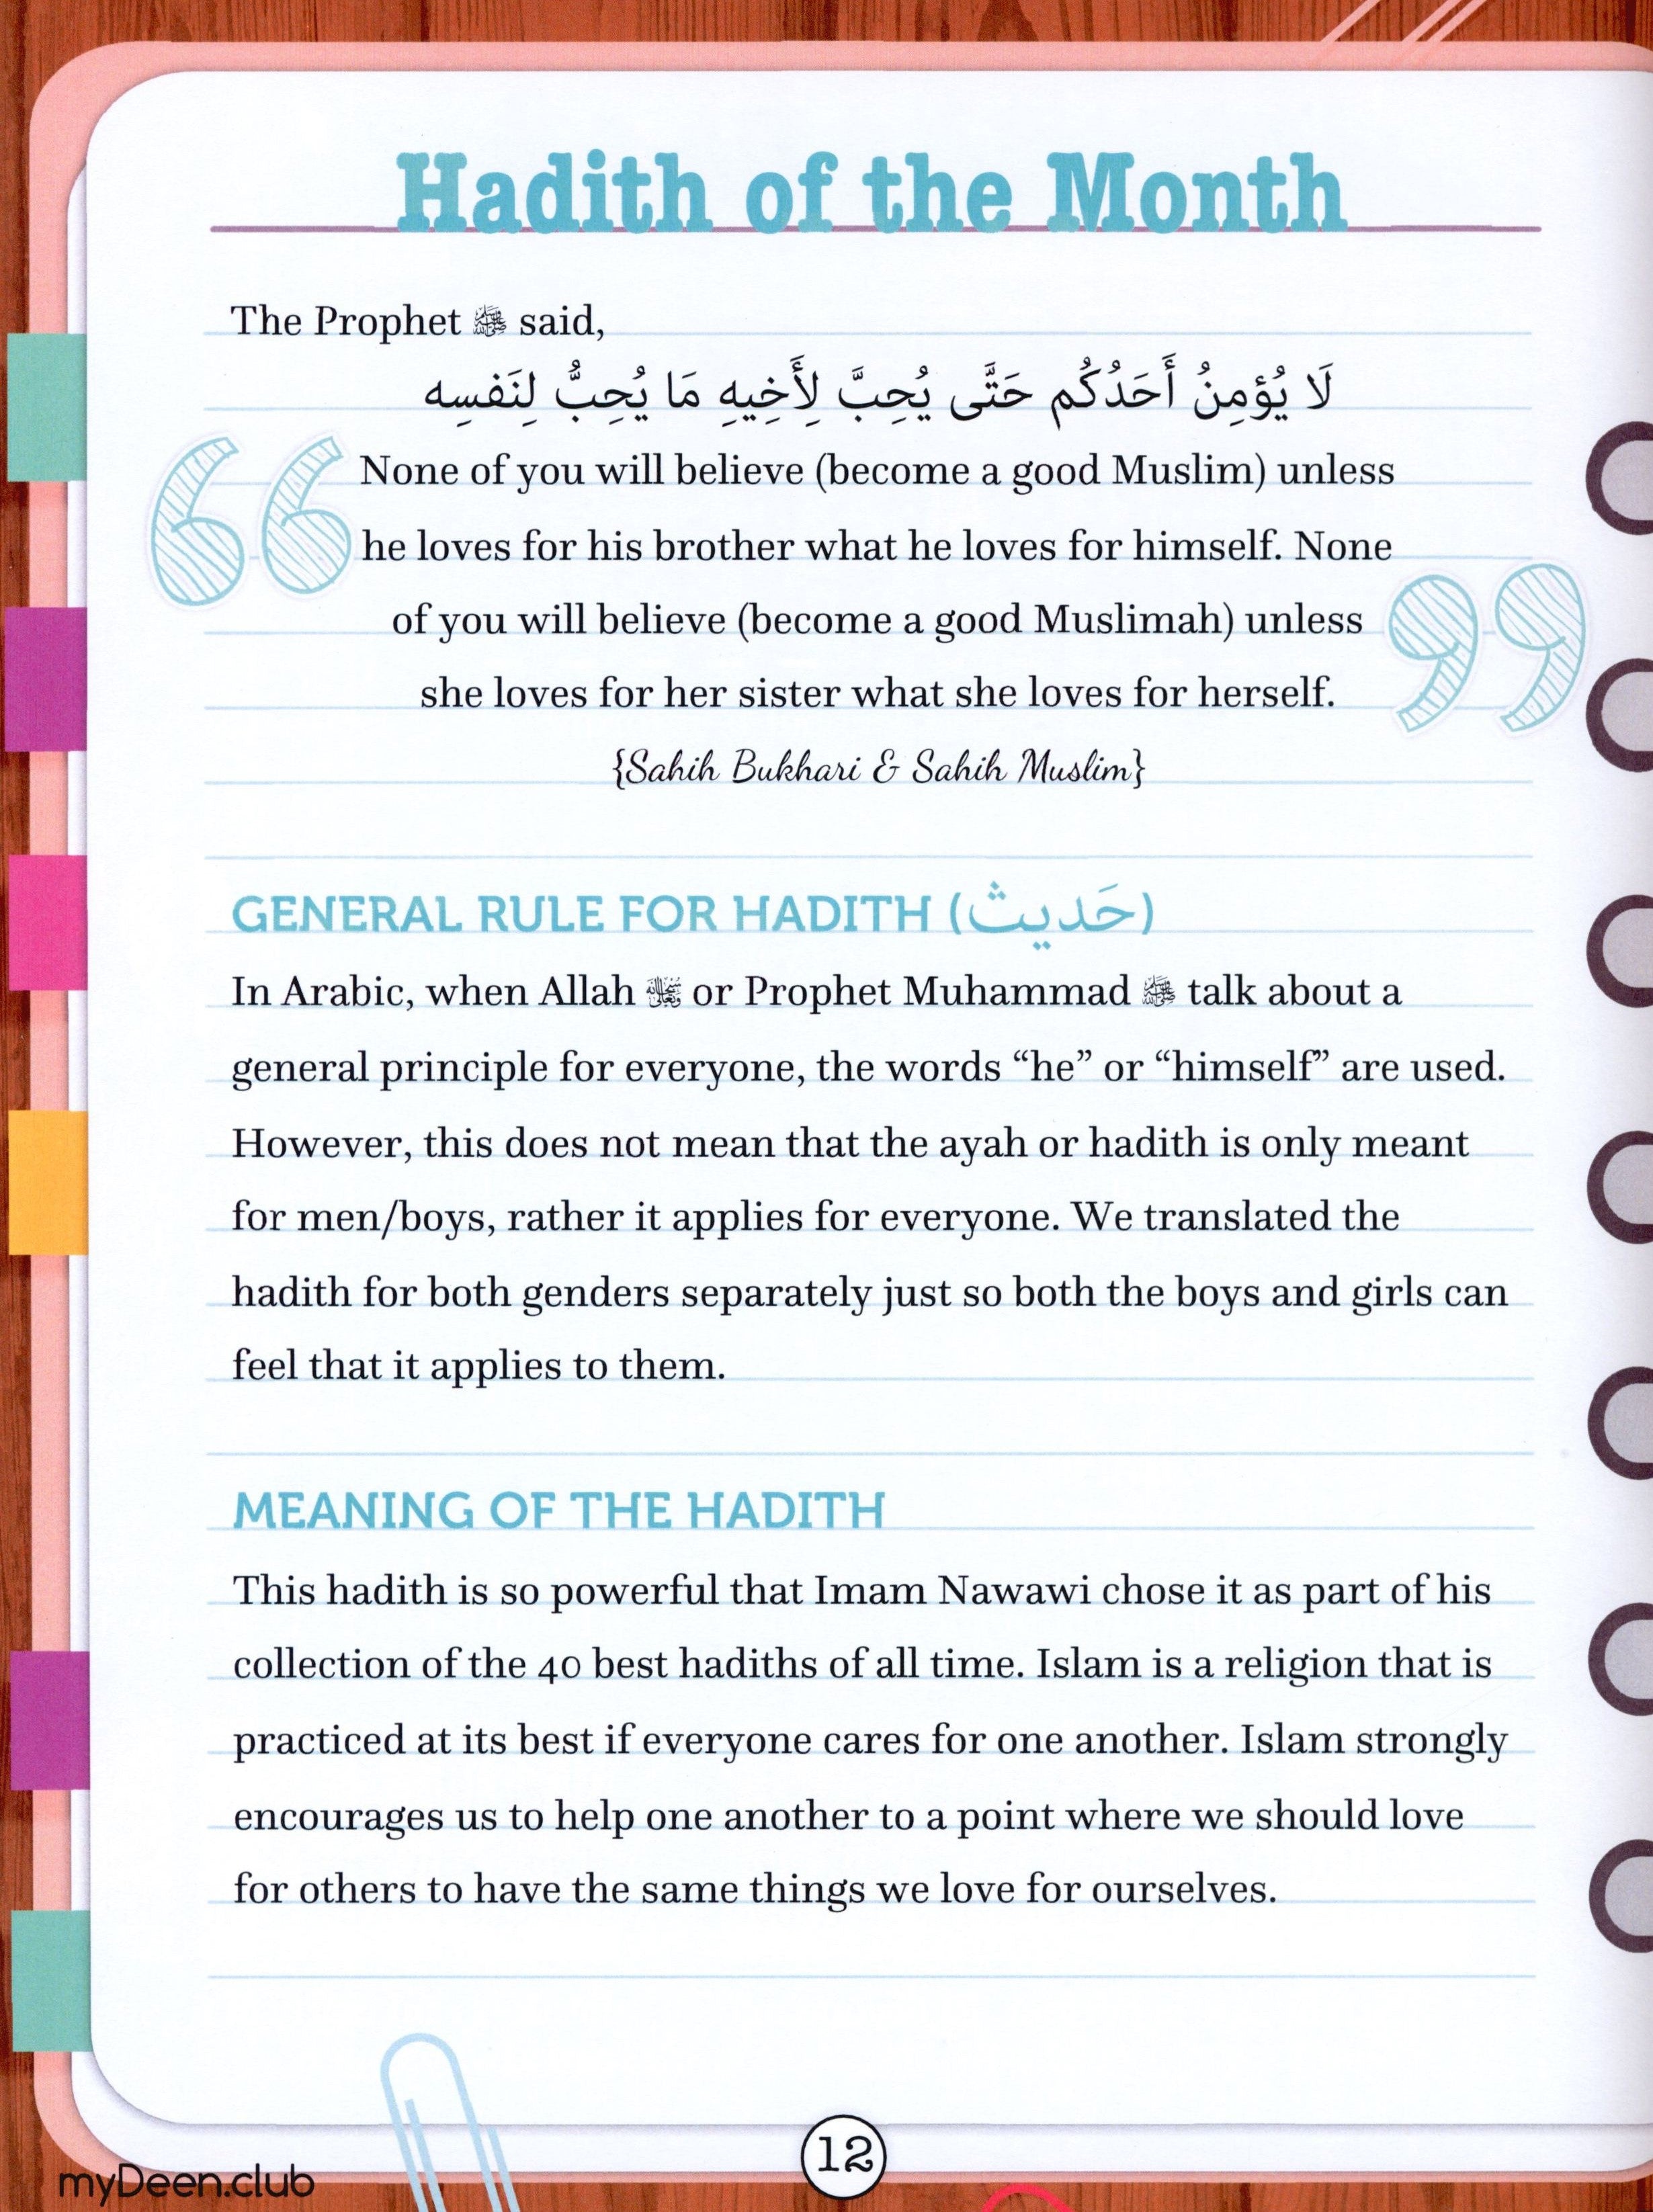 Hadith of the Month
The Prophet ﷺ said,
لَا يُؤمِنُ أَحَدُكُم حَتَّى يُحِبَّ لِأَخِيهِ مَا يُحِبُّ لِنَفسِه
None of you will believe (become a good Muslim) unless
he loves for his brother what he loves for himself. None
of you will believe (become a good Muslimah) unless
she loves for her sister what she loves for herself.
{Sahih Bukhari & Sahih Muslim}
GENERAL RULE FOR HADITH (حَديث)
In Arabic, when Allah سُبْحَانَهُ وَتَعَالَى or Prophet Muhammad ﷺ talk about a
general principle for everyone, the words “he” or “himself” are used.
However, this does not mean that the ayah or hadith is only meant
for men/boys, rather it applies for everyone. We translated the
hadith for both genders separately just so both the boys and girls can
feel that it applies to them.
MEANING OF THE HADITH
This hadith is so powerful that Imam Nawawi chose it as part of his
collection of the 40 best hadiths of all time. Islam is a religion that is
practiced at its best if everyone cares for one another. Islam strongly
encourages us to help one another to a point where we should love
for others to have the same things we love for ourselves.
12
myDeen.club